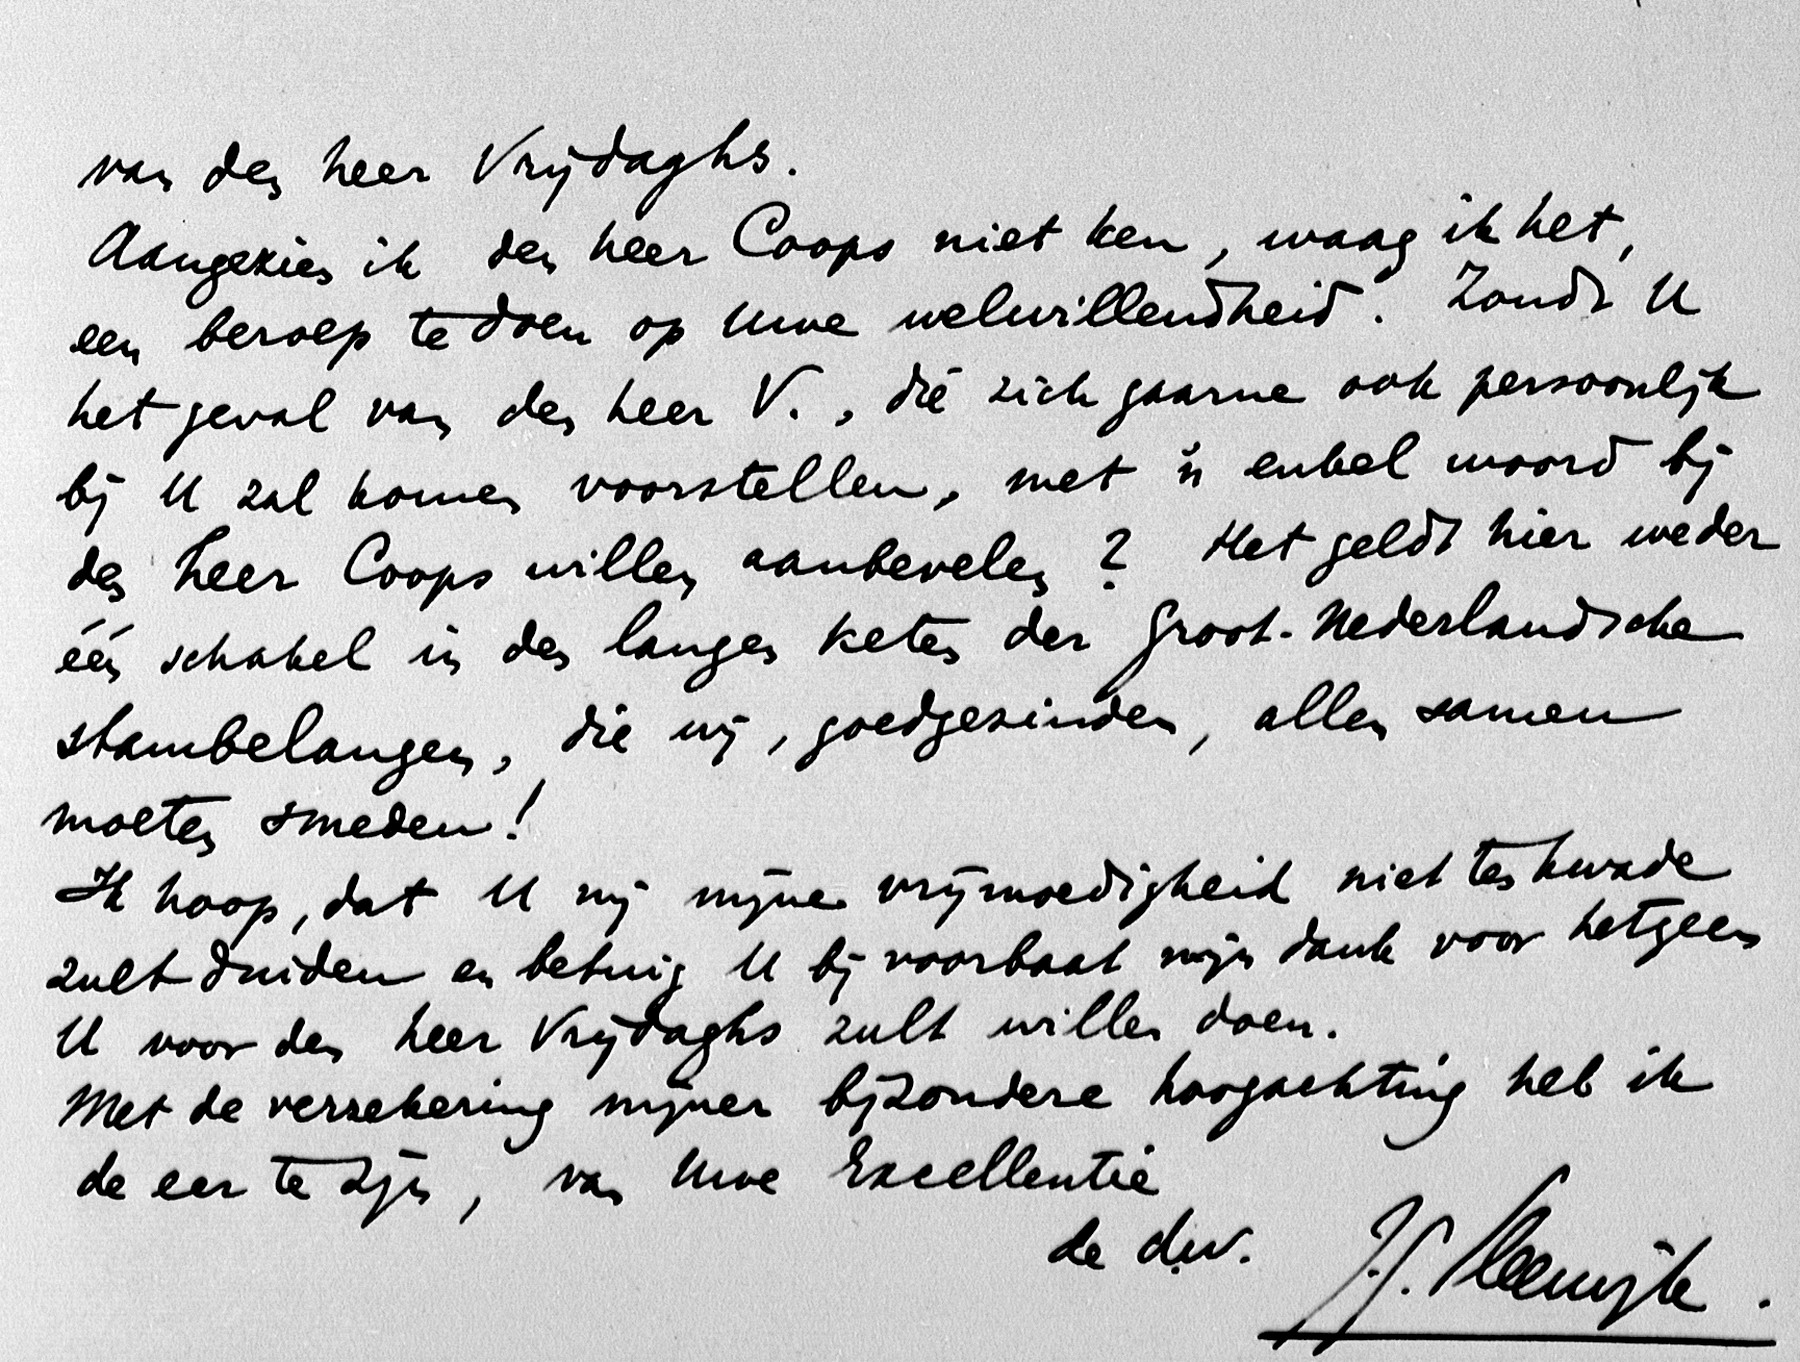 van den heer Vrijdaghs.
Aangezien ik den heer Coops niet ken, waag ik het,
een beroep te doen op Uwe welwillendheid. Zoudt U
het geval van den heer V., die zich gaarne ook persoonlijk
bij U zal komen voorstellen, met 'n enkel woord bij
den heer Coops willen aanbevelen? Het geldt hier weder
één schakel in den langen keten der Groot-Nederlandsche
stambelangen, die wij, goedgezinden, allen samen
moeten smeden!
Ik hoop, dat U mij mijne vrijmoedigheid niet ten kwade
zult duiden en betuig U bij voorbaat mijn dank voor hetgeen
U voor den heer Vrijdaghs zult willen doen.
Met de verzekering mijner bijzondere hoogachting heb ik
de eer te zijn, van Uwe Excellentie
de d.w.